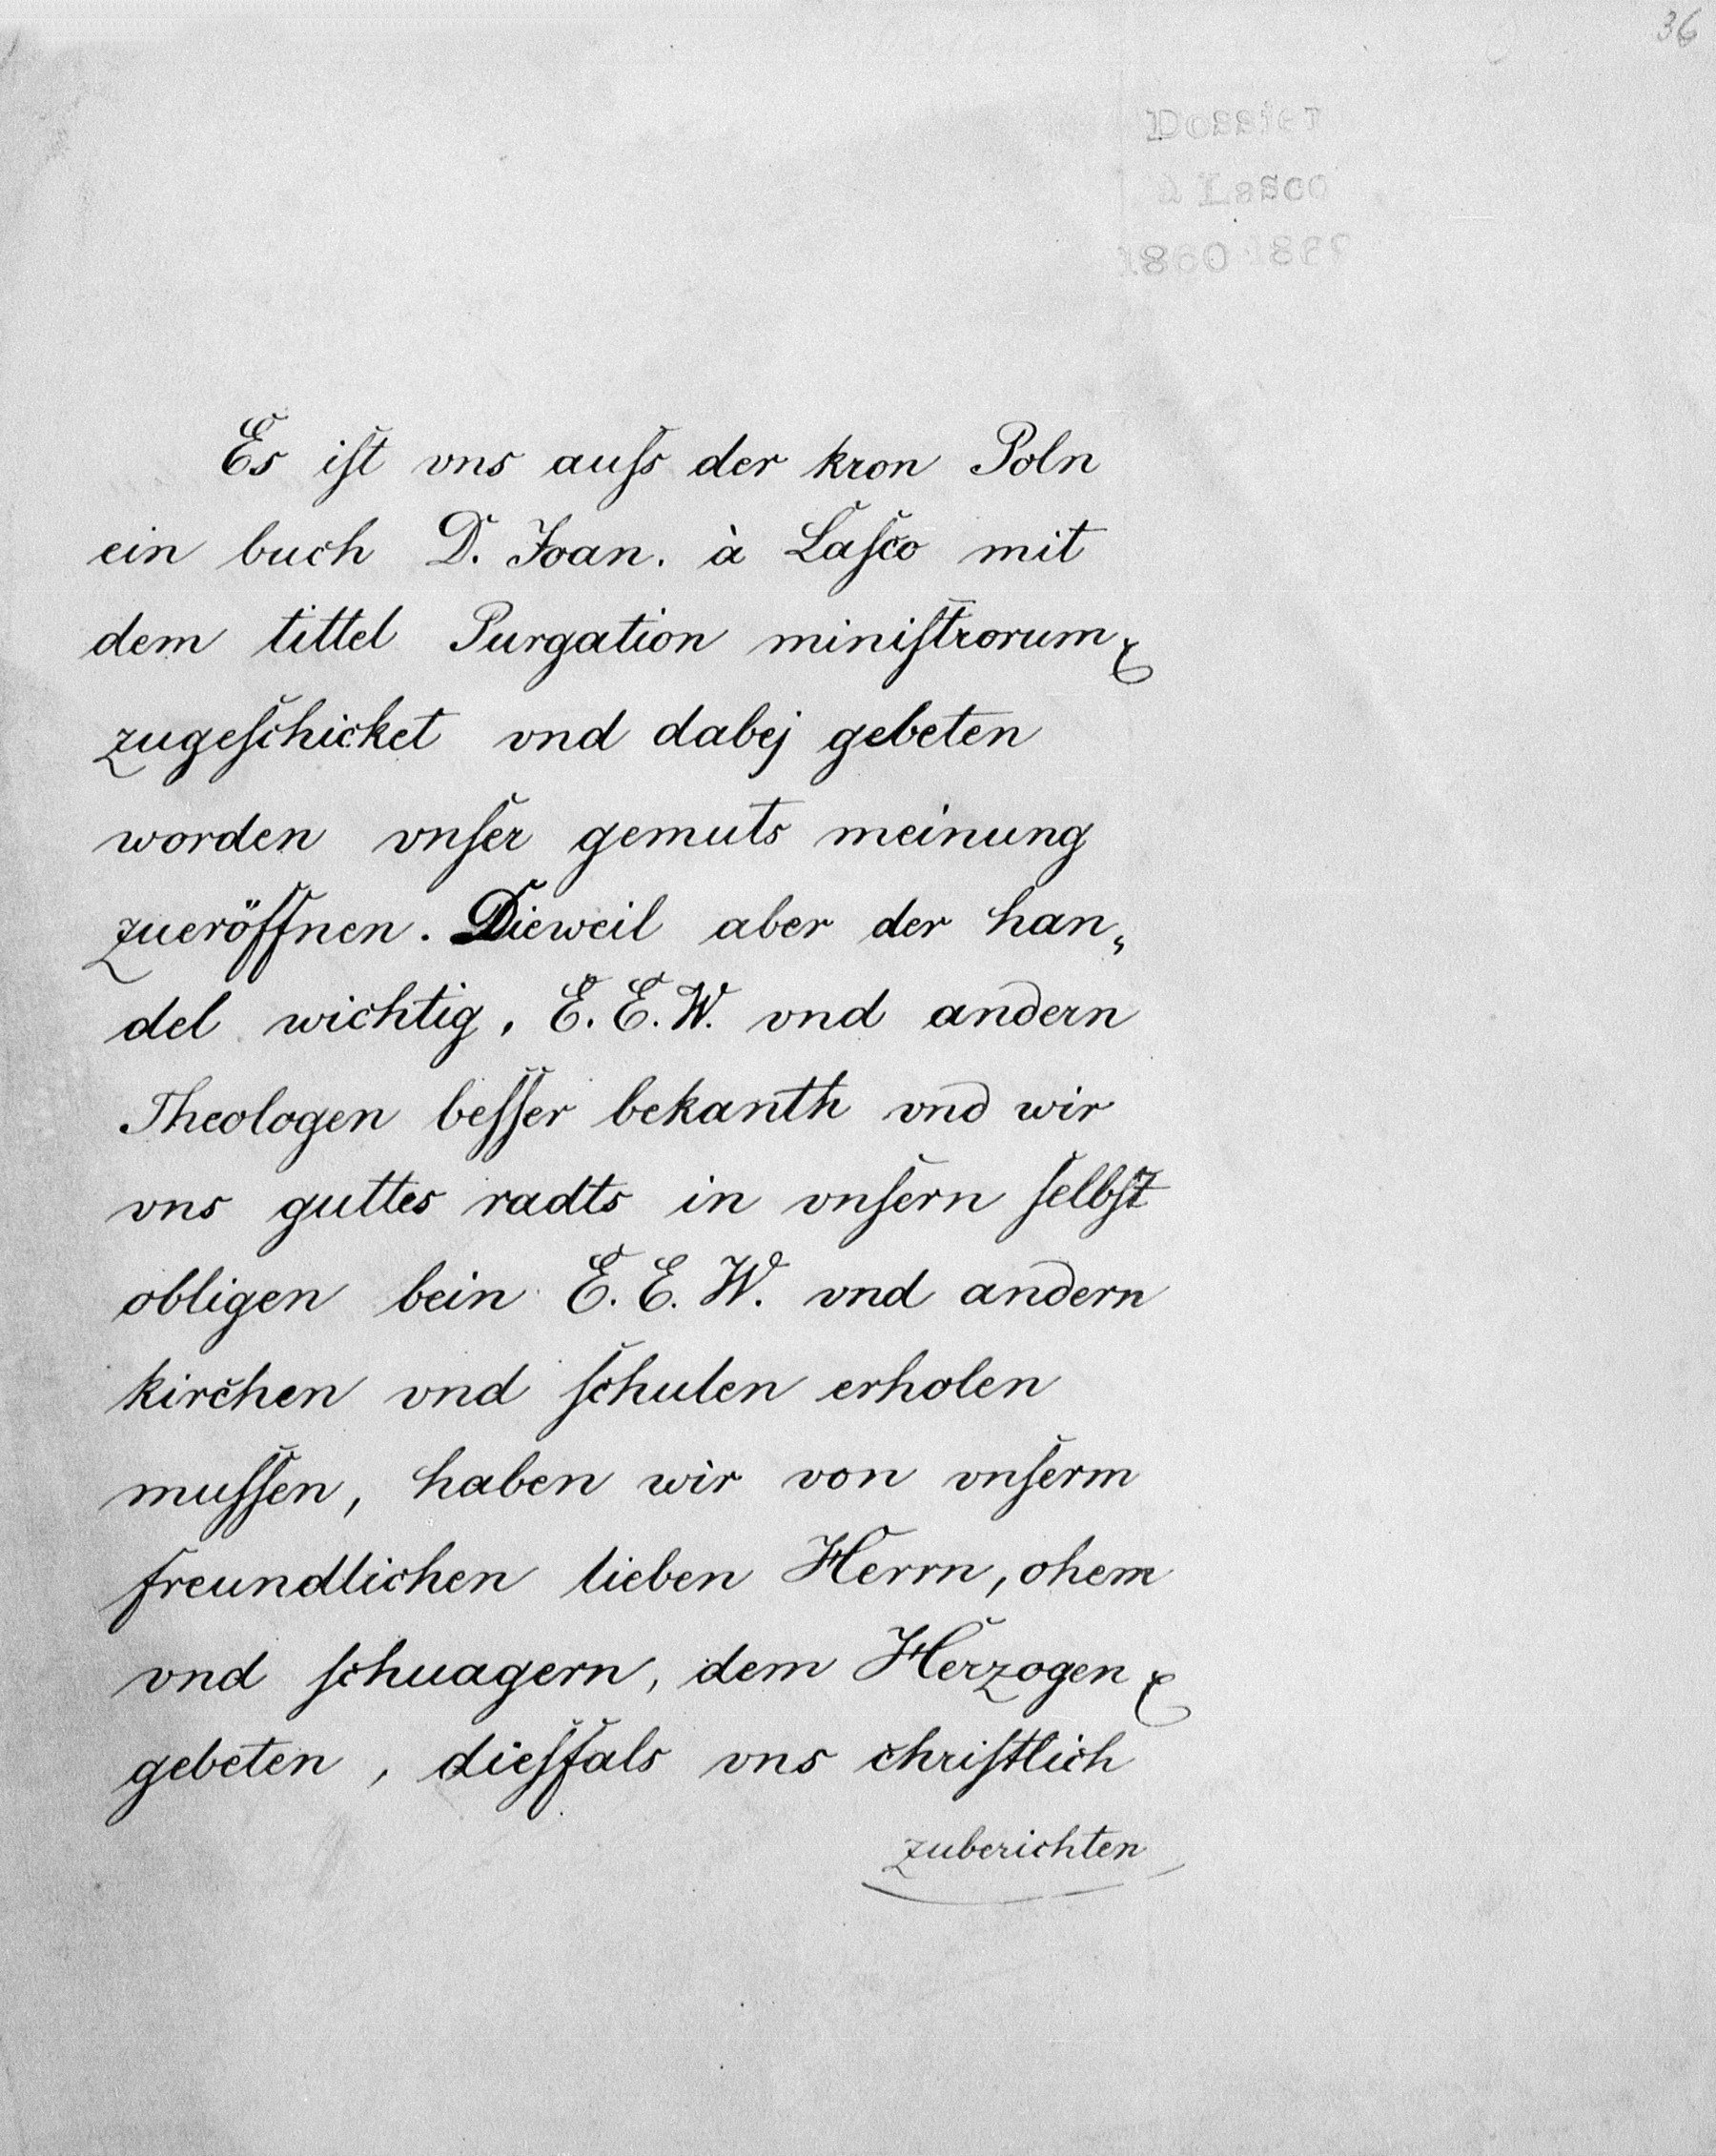 36
Dossier
à Lasco
1860
Es iſt vns auſs der kron Poln
ein buch D. Joan. à Laſco mit
dem tittel Purgation miniſtrorum
zugeſchicket vnd dabej gebeten
worden vnſer gemuts meinung
zueröffnen. Dieweil aber der han„
del wichtig, E. E. W. vnd andern
Theologen beſſer bekanth vnd wir
vns guttes radts in vnſern ſelbſt
obligen bein E. E. W. vnd andern
kirchen vnd ſchulen erholen
muſſen, haben wir von vnſerm
freundlichen lieben Herrn, ohem
vnd ſchuagern, dem Herzogen
gebeten, dieſfals vns chriſtlich
zuberichten